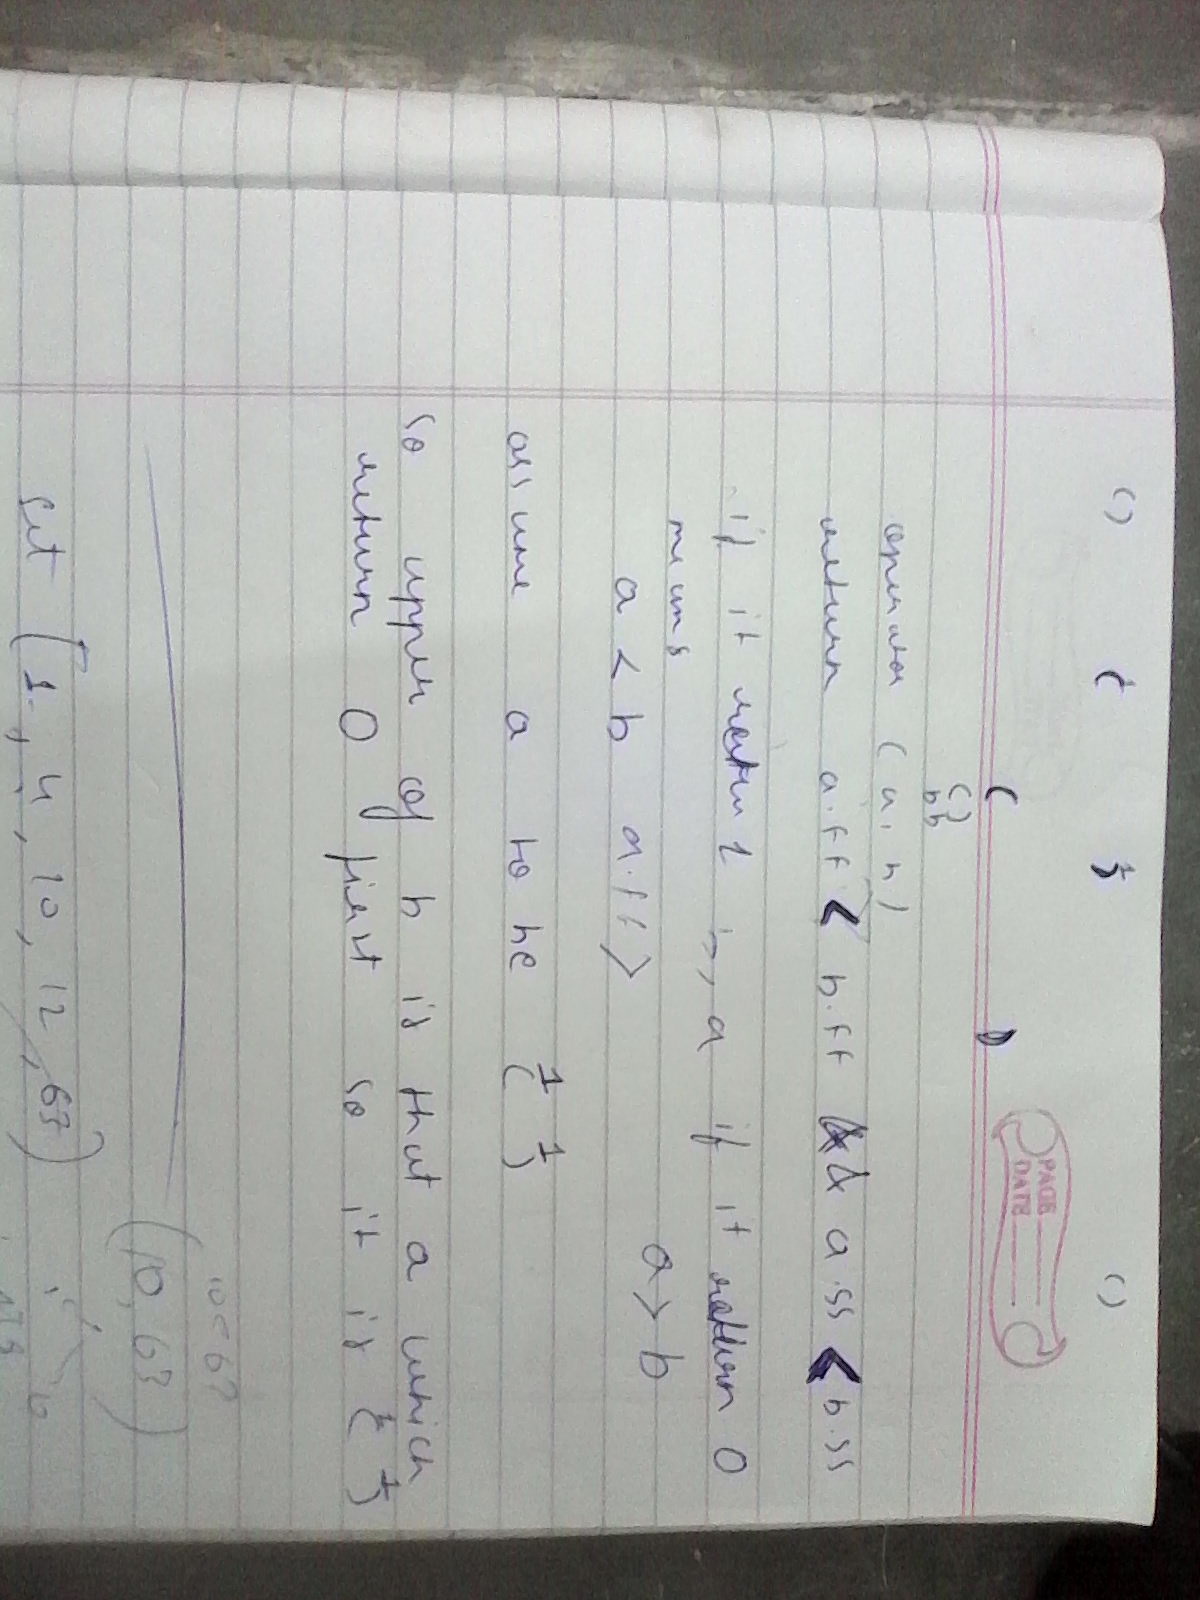 () { } ()
PAGE
DATE
( )
()
bb
operator (a, b)
return a.ff < b.ff && a.ss < b.ss
if it return 1 , a if it return 0
means a > b
a < b a.ff >
assume a to be { }
1 1
so upper of b is that a which
return 0 first so it is { }
(10, 63)
set [1, 4, 10, 12, 63)